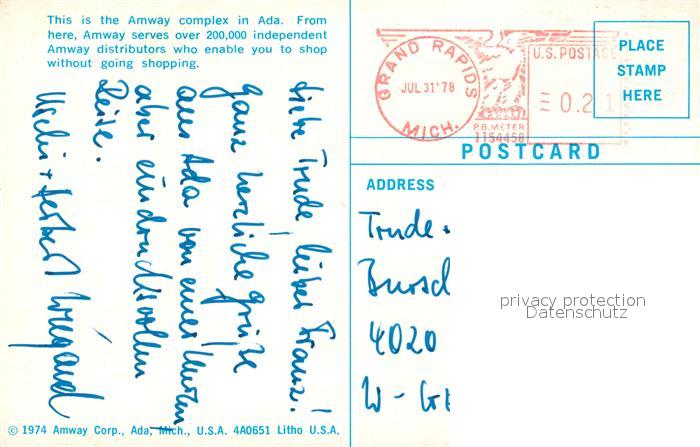 This is the Amway complex in Ada. From
here, Amway serves over 200,000 independent
Amway distributors who enable you to shop
without going shopping.
Liebe Trude, lieber Franz!
ganz herzliche Grüße
aus Ada von einer kurzen,
aber eindrucksvollen
Reise.
Uschi + Herbert Wiegand
© 1974 Amway Corp., Ada, Mich., U.S.A. 4A0651 Litho U.S.A.
GRAND RAPIDS
JUL 31'78
MICH.
U.S. POSTAGE
0.21
P.B. METER
1154458
PLACE
STAMP
HERE
POSTCARD
ADDRESS
Trude +
4020
W-
privacy protection
Datenschutz